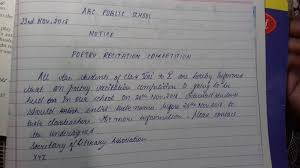 ABC PUBLIC SCHOOL
23rd Nov, 2018
NOTICE
POETRY RECITATION COMPETITION
All the students of class VIII to X are hereby informed
that an poetry recitation competition is going to be
held on in our school on 28th Nov, 2018. Interested students
should submit their names before 25th Nov, 2018 to
their class teachers. For more information please contact
the undersigned
Secretary of Literary Association
XYZ